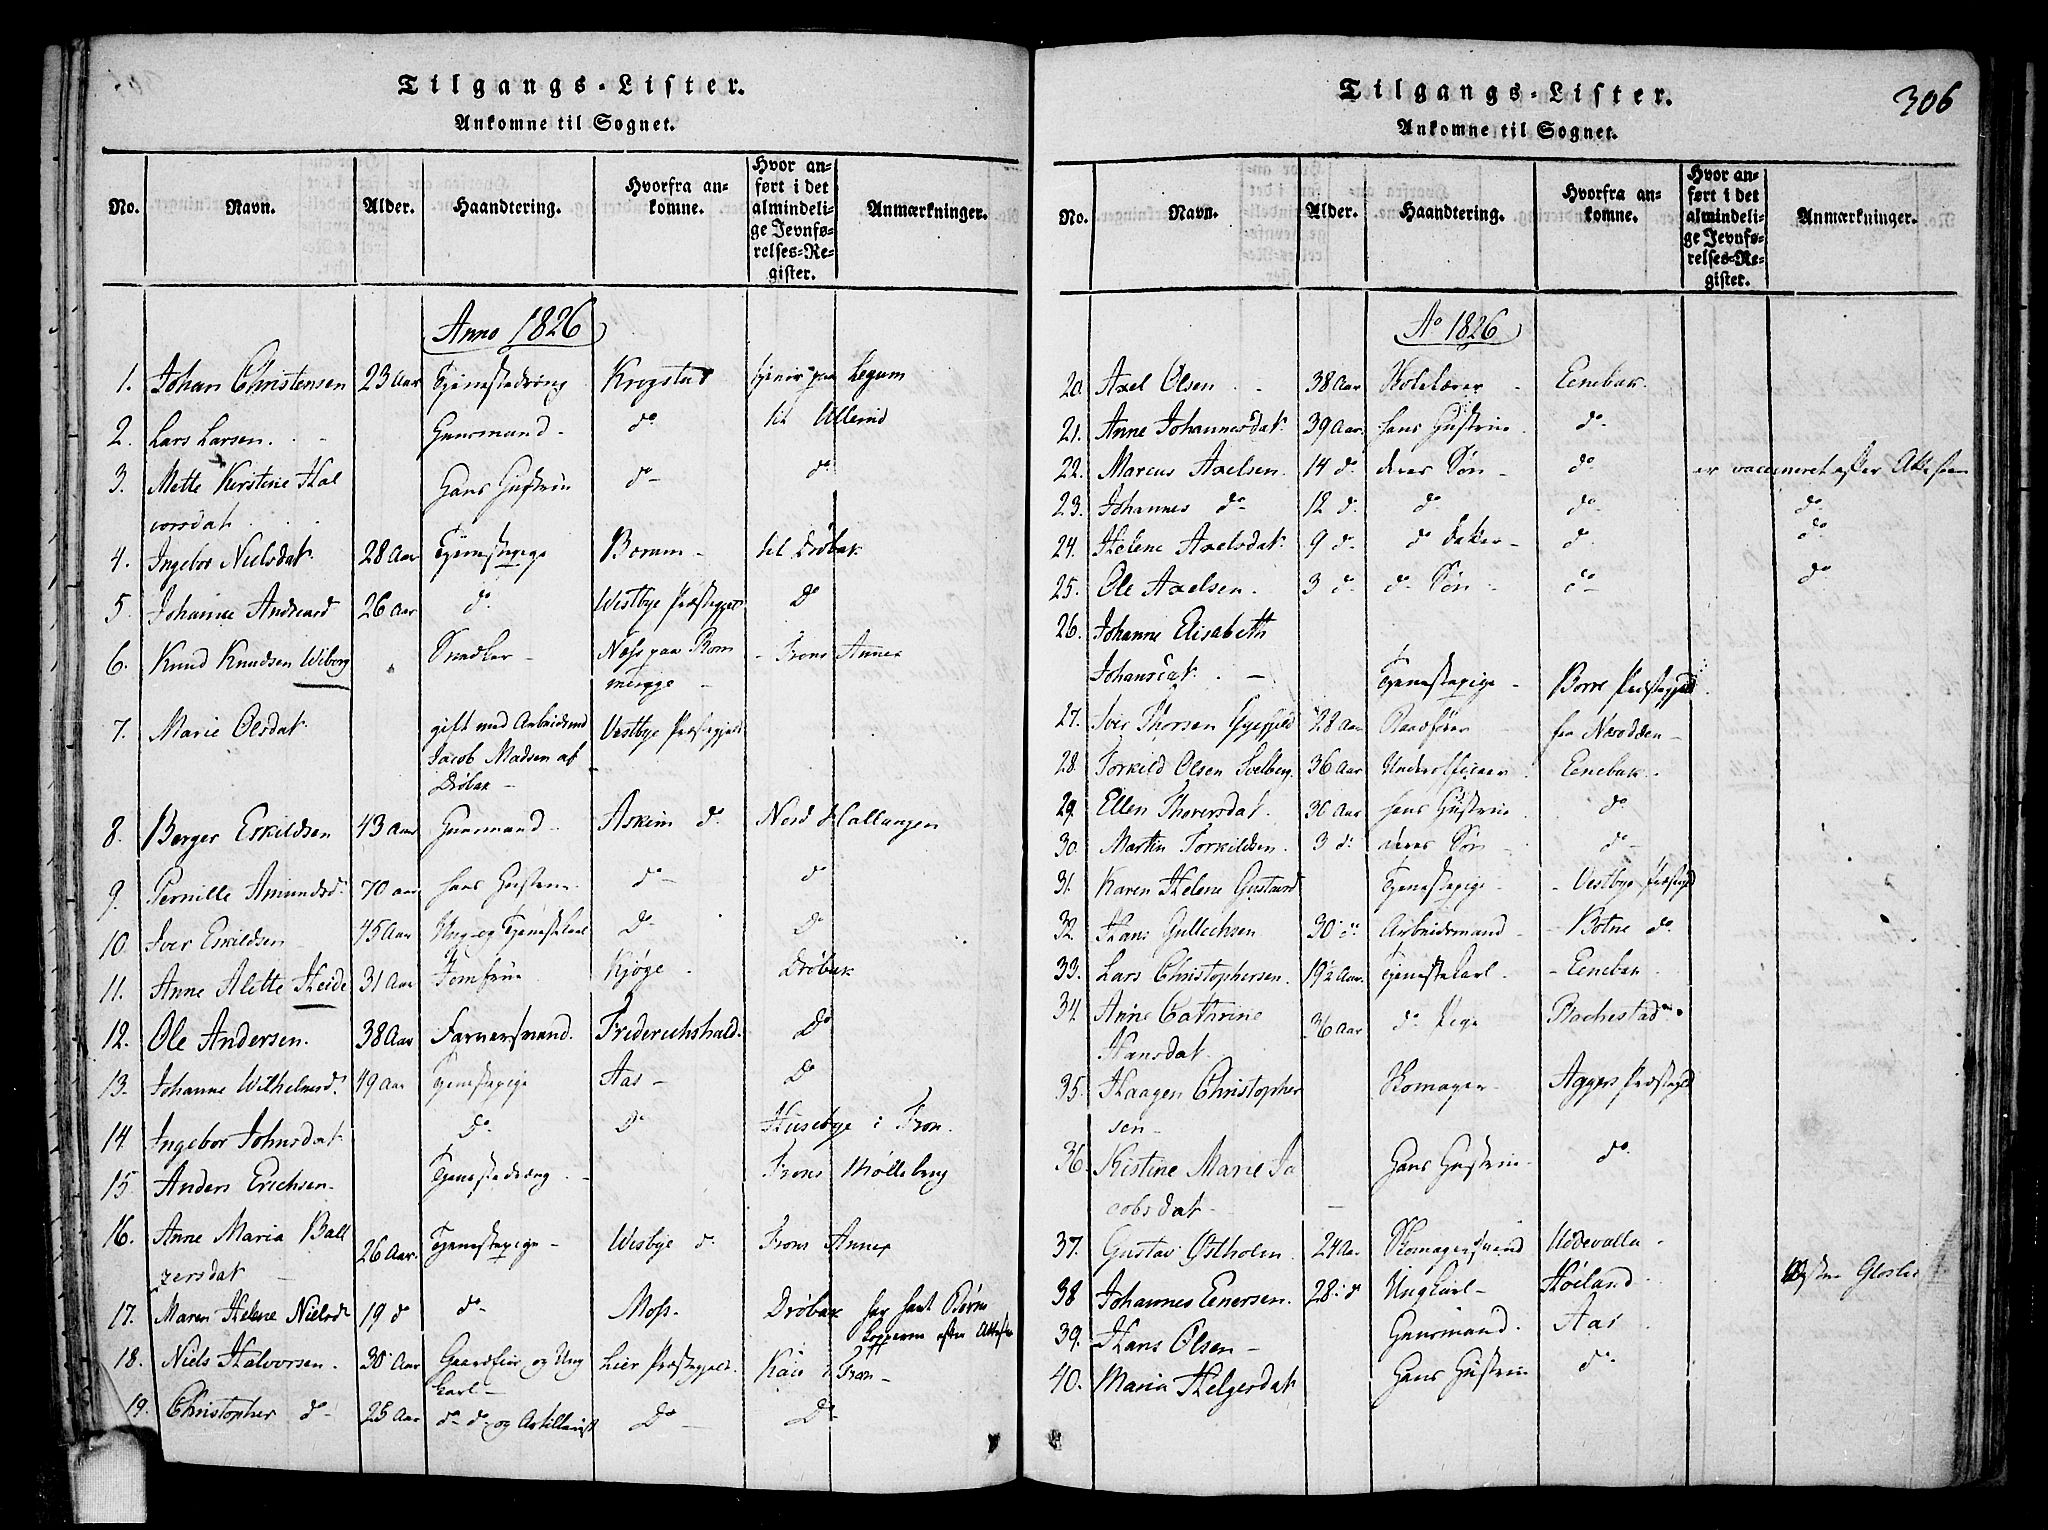 Tilgangs-Lister.
Ankomne til Sognet.
No. Navn. Alder. Haandtering. Hvorfra an-
komne. Hvor an-
ført i det
almindeli-
ge Jevnfø-
relses-Re-
gister. Anmærkninger.
Anno 1826
1. Johan Christensen 23 Aar Tjenestedreng Krogstad tjener paa
2. Lars Larsen. Gaarmand - do til
3. Mette Kirstine Hal Hans Hustrue do do
vorsdat.
4. Ingebor Nielsdat. 28 Aar Tjenestepige til Drøbak
5. Johanne 26 Aar do Westbye Præstegjeld Do
6. Knud Knudsen Wiborg Snedker - Næss paa Rom Frons Annex
merige -
7. Marie Olsdat. gift med Arbeidsmd Vestbye Præstegjeld
Jacob Madsen af
Drøbak -
8. Børger Eskildsen 43 Aar Gaarmand - Askim do Nord
9. Pernille Amundsd. 70 aar hans do do
10. Iver Eskildsen 45 Aar Ung og Tjenestekarl Do Do
11. Anne Alette Heide 31 Aar Jomfrue Kjøge. Drøbak
12. Ole Andersen. 38 Aar Farversvend. Friderichshald. Do
13. Johanne Wilhelmsd. 49 Aar Tjenestepige Aas - Do
14. Ingebor Johnsdat. do Do Husebye i Fron.
15. Anders Erichsen. Tjenestedreng - Frons
16. Anne Maria Ball 26 Aar. Tjenestepige - Wesbye do Frons Annex
zersdat -
17. Maren Helene Nielsd. 19 do do Moss. Drøbak har havt Børne
Kopperne efter Attest
18. Niels Halvorsen. 30 Aar og Ung Lier Præstegjeld. i Fron -
karl -
19. Christopher do 25 Aar do do og Artillerist Do Do
306
Tilgangs-Lister.
Ankomne til Sognet.
No. Navn. Alder. Haandtering. Hvorfra an-
komne. Hvor an-
ført i det
almindeli-
ge Jevnfø-
relses-Re-
gister. Anmærkninger.
Ao 1826
20. Axel Olsen. 38 Aar Eenebak.
21. Anne Johannesdat. 39 Aar. hans Hustrue. do
22. Marcus Axelsen. 14 do. deres Søn - do er vaccineret efter Attesten
23. Johannes do 12 do. do do do
24. Helene Axelsdat. 9 do do Datter - do do
25. Ole Axelsen. 3 do. do Søn do do
26. Johanne Elisabeth
Johansdat. Tjenestepige - Borre Præstegjeld.
27. Iver Thorsen 28 Aar fra Næsodden -
28. Torkild Olsen 36 Aar Underofficeer. Eenebak.
29. Ellen Thoversdat. 30 Aar hans Hustrue. do
30. Martin Torkildsen. 3 do deres Søn do
31. Karen Helene Tjenestepige - Vestbye Præstegd
32. Hans Gullichsen 30 do Arbeidsmand Botne do
33. Lars Christophersen. 19½ Aar. Tjenestekarl - Eenebak.
34. Anne Cathrine 36 Aar do Pige Rachestad
Hansdat.
35. Haagen Christopher Skomager - Aggers Præstegjeld
sen -
36. Kistine Marie Ja Hans Hustrue - do
cobsdat -
37. Gustav Østholm. 24 Aar Skomagersvend Uddevalla -
38 Johannes Enersen. 28 do Ungkarl - Høiland
39. Hans Olsen - Gaarmand. Aas
40. Maria Helgesdat Hans Hustrue do